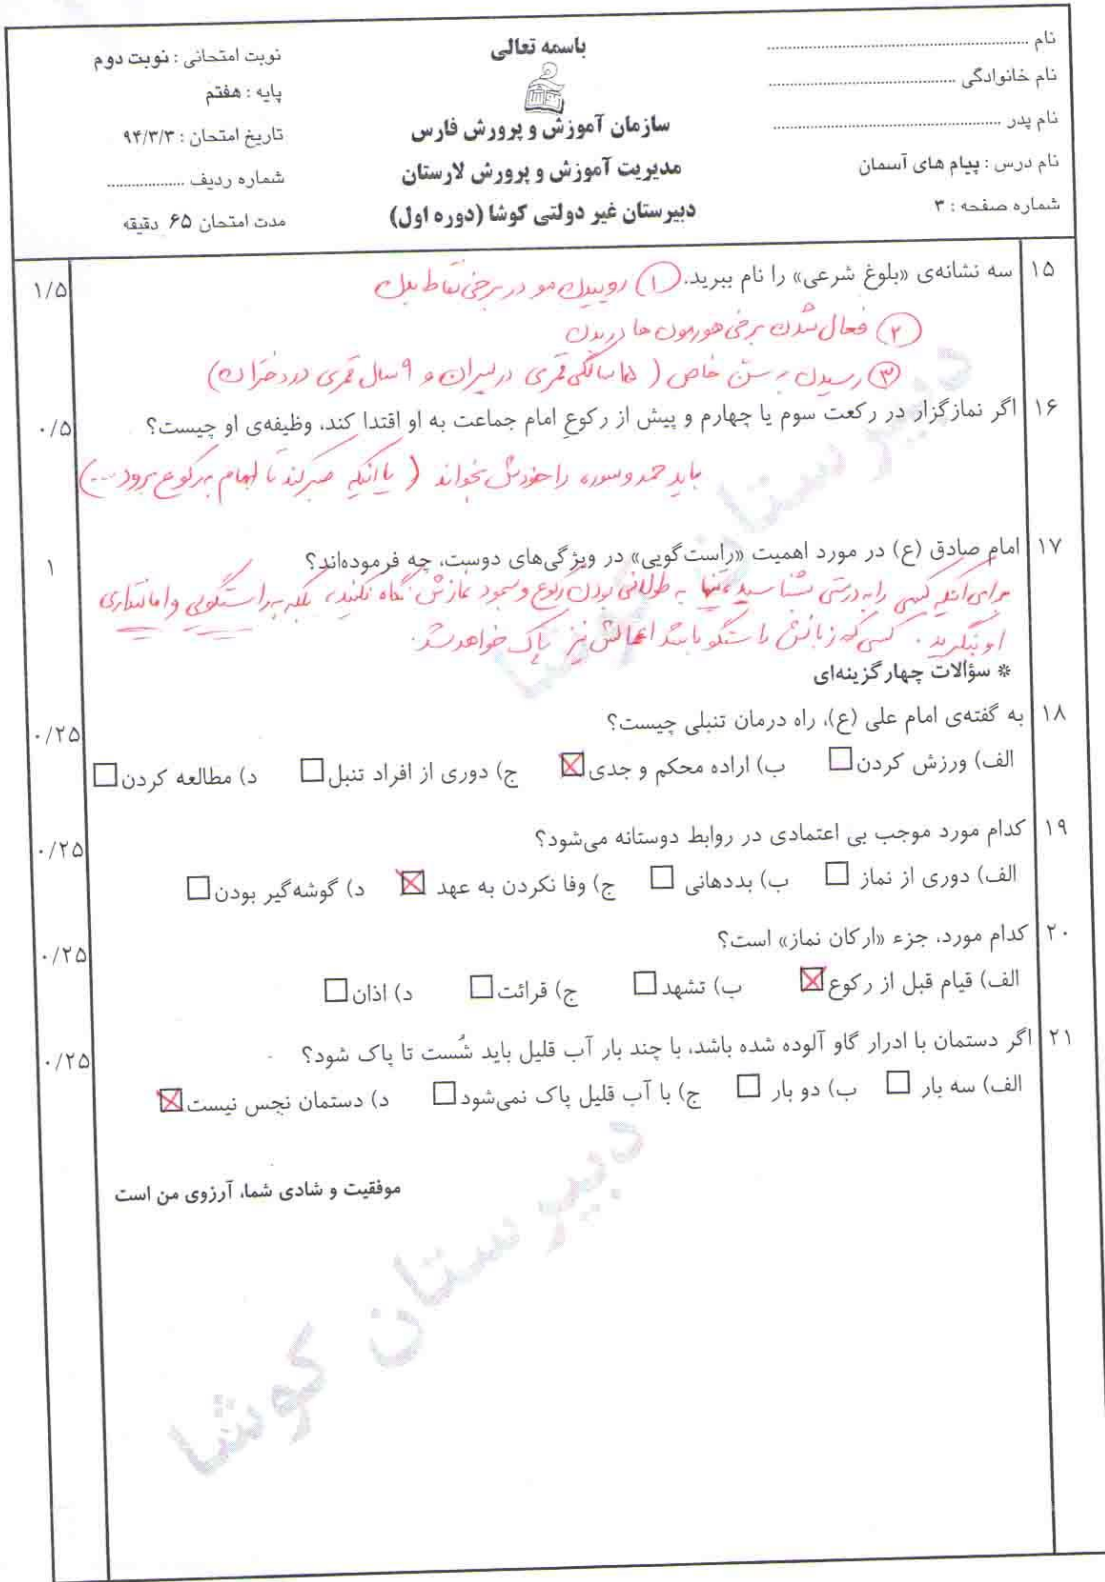 باسمه تعالی
نام ..........
نام خانوادگی ..........
نام پدر ..........
نام درس : پیام های آسمان
شماره صفحه : ۳
سازمان آموزش و پرورش فارس
مدیریت آموزش و پرورش لارستان
دبیرستان غیر دولتی کوشا (دوره اول)
نوبت امتحانی : نوبت دوم
پایه : هفتم
تاریخ امتحان : ۹۴/۳/۳
شماره ردیف ..........
مدت امتحان ۶۵ دقیقه
۱۵ سه نشانه‌ی «بلوغ شرعی» را نام ببرید. ① روییدن مو در برخی نقاط بدن ۱/۵
② فعال شدن برخی هورمون ها در بدن
③ رسیدن به سن خاص (۱۵ سالگی قمری در پسران و ۹ سال قمری در دختران)
۱۶ اگر نمازگزار در رکعت سوم یا چهارم و پیش از رکوع امام جماعت به او اقتدا کند، وظیفه‌ی او چیست؟ ۰/۵
باید حمد و سوره را خودش بخواند ( یا آنکه صبر کند تا امام به رکوع برود ...)
۱۷ امام صادق (ع) در مورد اهمیت «راست‌گویی» در ویژگی‌های دوست، چه فرموده‌اند؟ ۱
برای آنکه کسی را به درستی بشناسید، تنها به طولانی بودن رکوع و سجود نمازش نگاه نکنید، بلکه به راستگویی و امانتداری
او بنگرید. کسی که زبانش راستگو باشد اعمالش نیز پاک خواهد شد.
* سؤالات چهارگزینه‌ای
۱۸ به گفته‌ی امام علی (ع)، راه درمان تنبلی چیست؟ ۰/۲۵
الف) ورزش کردن☐ ب) اراده محکم و جدی☒ ج) دوری از افراد تنبل☐ د) مطالعه کردن☐
۱۹ کدام مورد موجب بی اعتمادی در روابط دوستانه می‌شود؟ ۰/۲۵
الف) دوری از نماز ☐ ب) بددهانی ☐ ج) وفا نکردن به عهد ☒ د) گوشه‌گیر بودن☐
۲۰ کدام مورد، جزء «ارکان نماز» است؟ ۰/۲۵
الف) قیام قبل از رکوع☒ ب) تشهد☐ ج) قرائت☐ د) اذان☐
۲۱ اگر دستمان با ادرار گاو آلوده شده باشد، با چند بار آب قلیل باید شُست تا پاک شود؟ ۰/۲۵
الف) سه بار ☐ ب) دو بار ☐ ج) با آب قلیل پاک نمی‌شود☐ د) دستمان نجس نیست☒
موفقیت و شادی شما، آرزوی من است
دبیرستان کوشا
دبیرستان کوشا